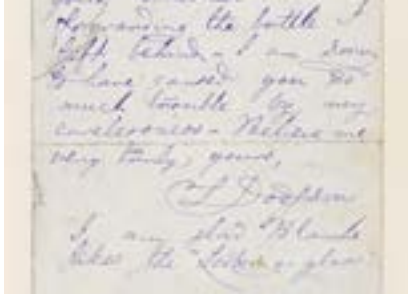 forwarding the bottle I
left behind - I am sorry
to have caused you so
much trouble by my
carelessness - Believe me
very truly, yours,
C L Dodgson
I am glad Blanche
likes the "Looking-glass"